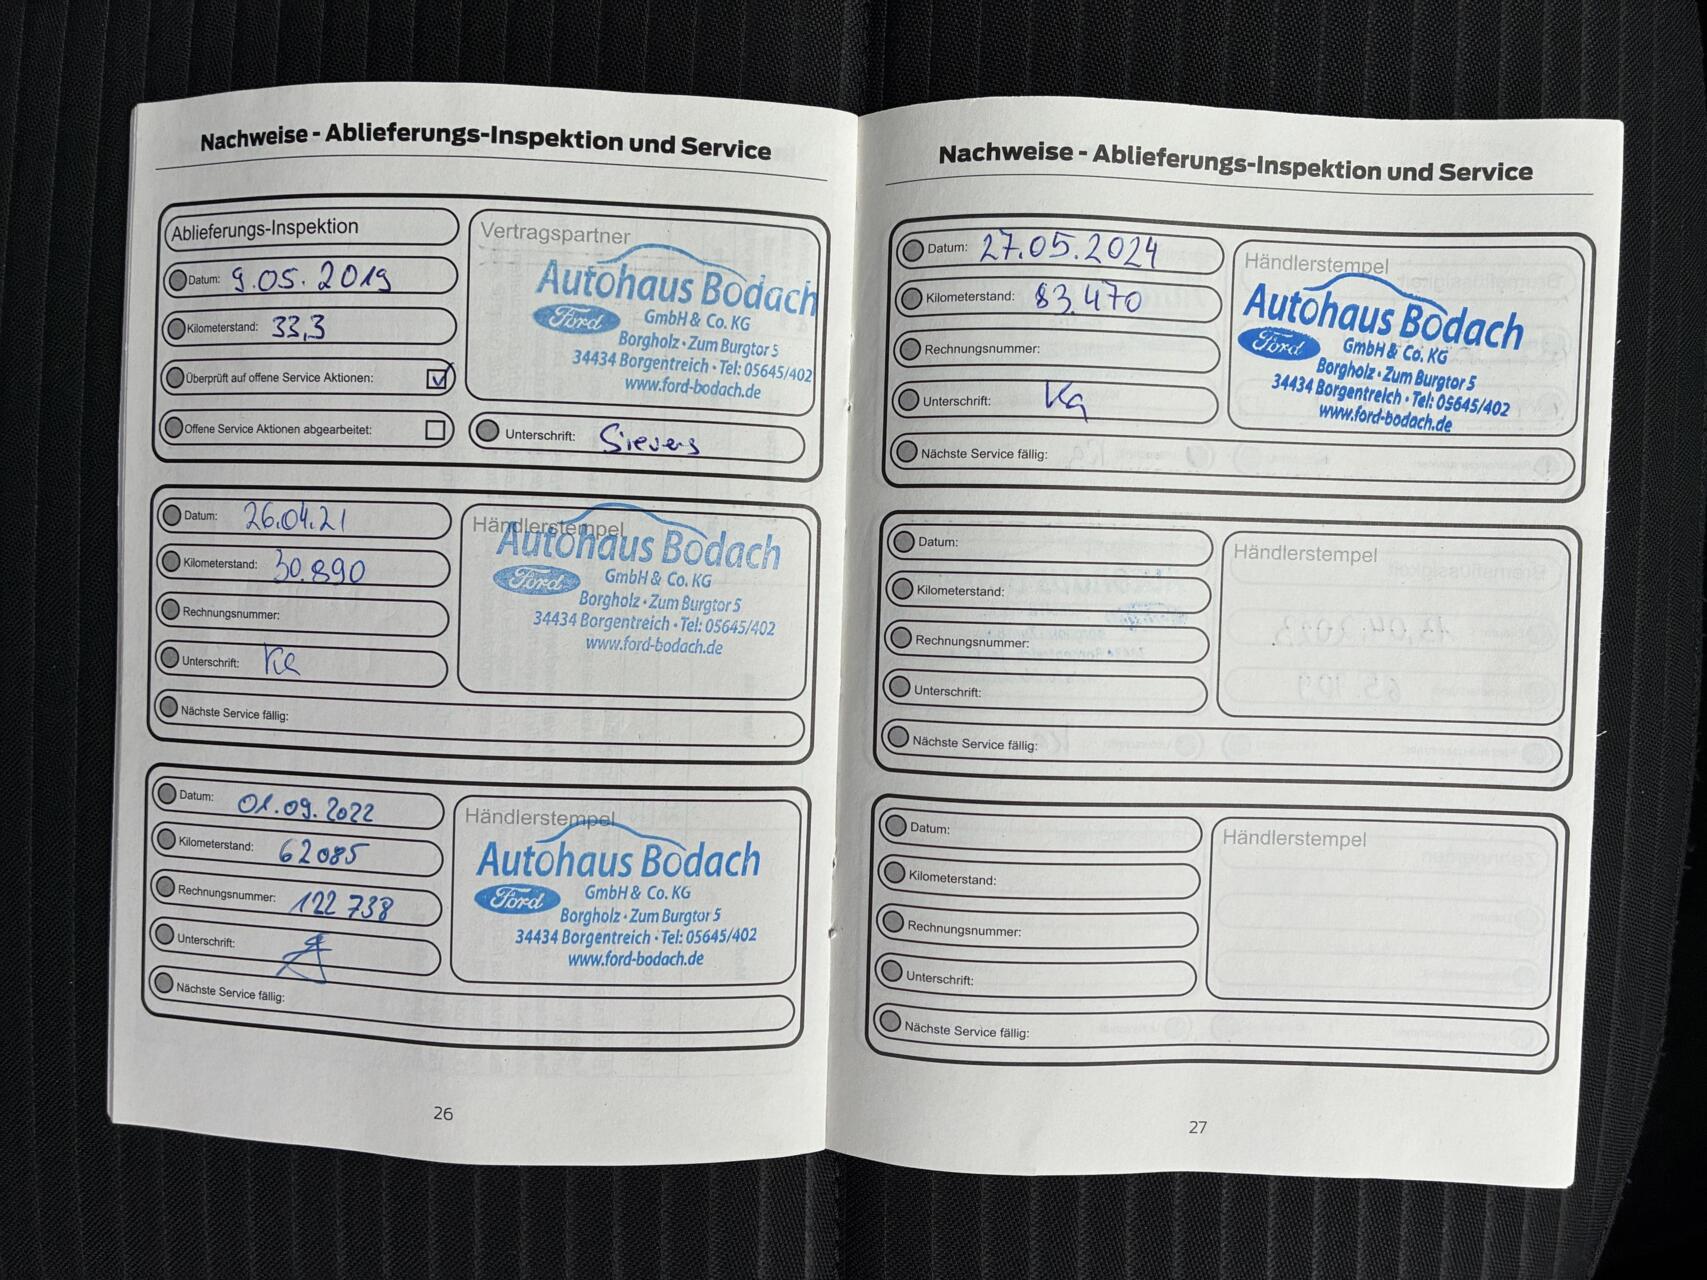 Nachweise - Ablieferungs-Inspektion und Service
Ablieferungs-Inspektion
Datum: 9.05.2019
Kilometerstand: 33,3
Überprüft auf offene Service Aktionen:
Offene Service Aktionen abgearbeitet:
Vertragspartner
Autohaus Bodach
Ford
GmbH & Co. KG
Borgholz · Zum Burgtor 5
34434 Borgentreich · Tel: 05645/402
www.ford-bodach.de
Unterschrift: Sievers
Datum: 26.04.21
Kilometerstand: 30.890
Rechnungsnummer:
Unterschrift:
Nächste Service fällig:
Händlerstempel
Autohaus Bodach
Ford
GmbH & Co. KG
Borgholz · Zum Burgtor 5
34434 Borgentreich · Tel: 05645/402
www.ford-bodach.de
Datum: 01.09.2022
Kilometerstand: 62085
Rechnungsnummer: 122 738
Unterschrift:
Nächste Service fällig:
Händlerstempel
Autohaus Bodach
Ford
GmbH & Co. KG
Borgholz · Zum Burgtor 5
34434 Borgentreich · Tel: 05645/402
www.ford-bodach.de
26
Nachweise - Ablieferungs-Inspektion und Service
Datum: 27.05.2024
Kilometerstand: 83.470
Rechnungsnummer:
Unterschrift:
Nächste Service fällig:
Händlerstempel
Autohaus Bodach
Ford
GmbH & Co. KG
Borgholz · Zum Burgtor 5
34434 Borgentreich · Tel: 05645/402
www.ford-bodach.de
Datum:
Kilometerstand:
Rechnungsnummer:
Unterschrift:
Nächste Service fällig:
Händlerstempel
Datum:
Kilometerstand:
Rechnungsnummer:
Unterschrift:
Nächste Service fällig:
Händlerstempel
27